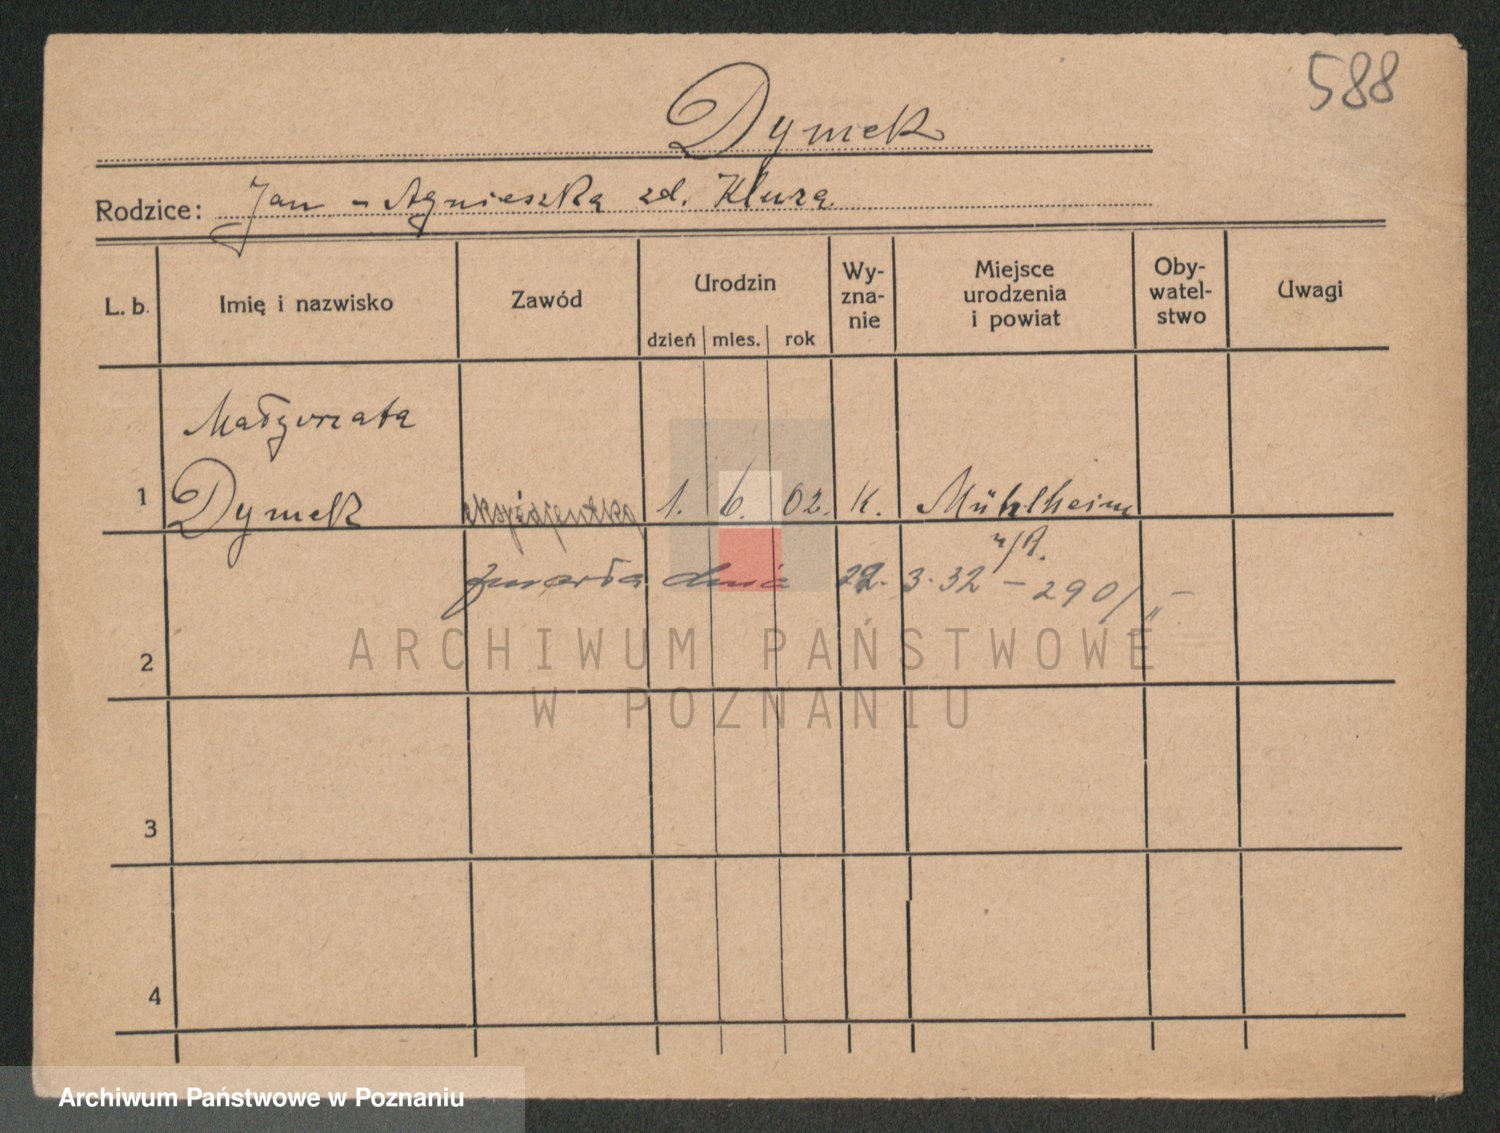 588
Dymek
Rodzice: Jan - Agnieszka zd. Kluza
L. b. Imię i nazwisko Zawód Urodzin dzień mies. rok Wy-zna-nie Miejsce urodzenia i powiat Oby-watel-stwo Uwagi
Małgorzata
1 Dymek ekspedjentka 1. 6. 02. K. Mühlheim
n/R.
zmarła dnia 22. 3. 32 - 290/
2
3
4
ARCHIWUM PAŃSTWOWE
W POZNANIU
Archiwum Państwowe w Poznaniu